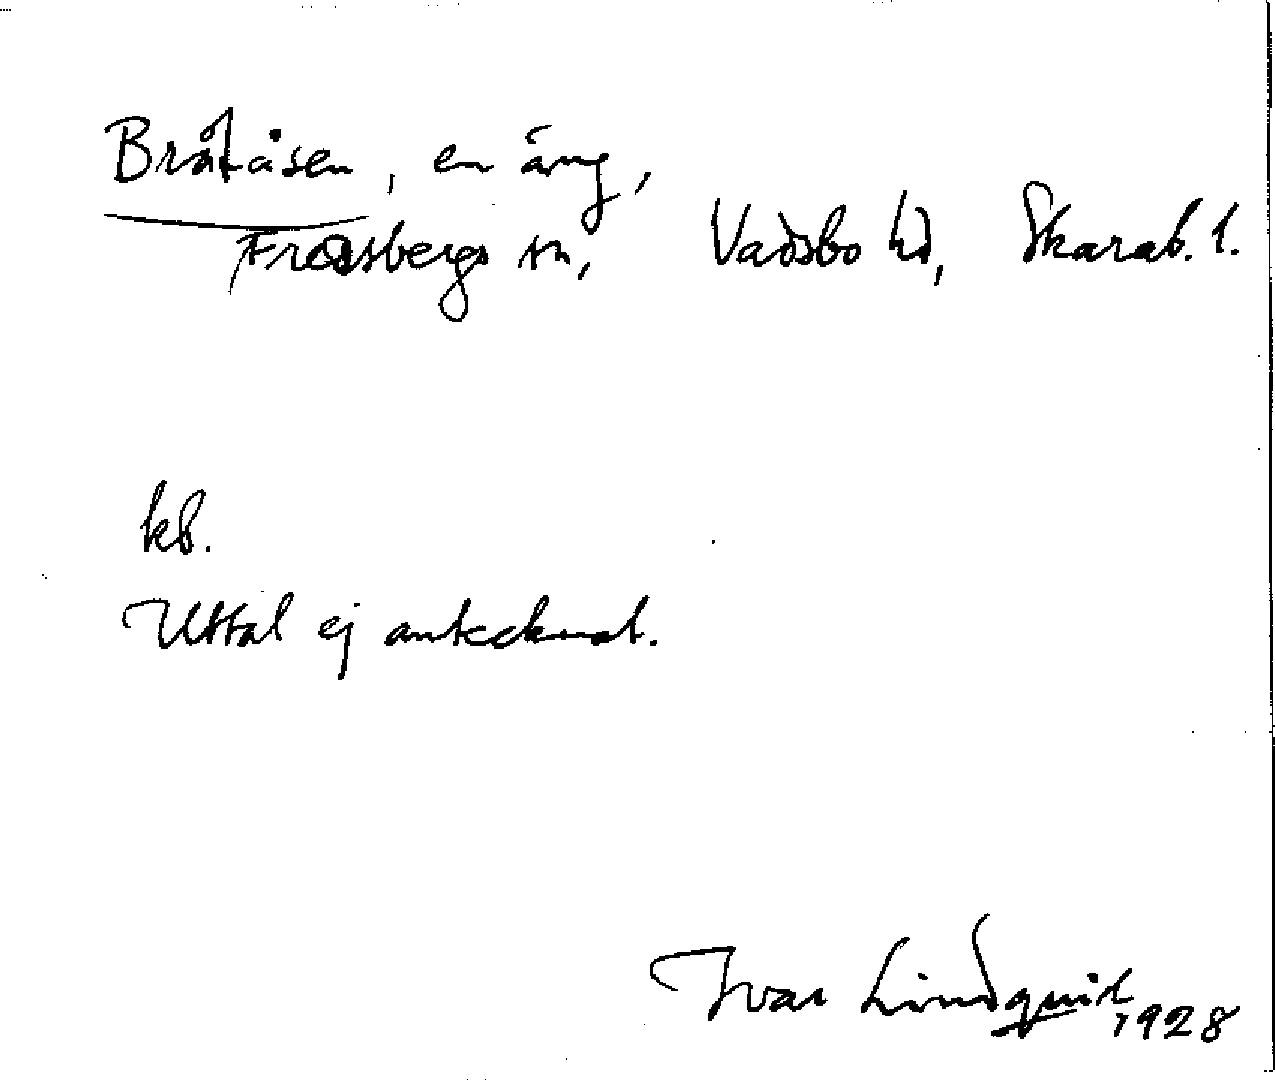 Bråtåsen, en äng,
Fredsbergs sn, Vadsbo hd, Skarab. l.
kb.
Uttal ej antecknat.
Ivar Lindquist 1928